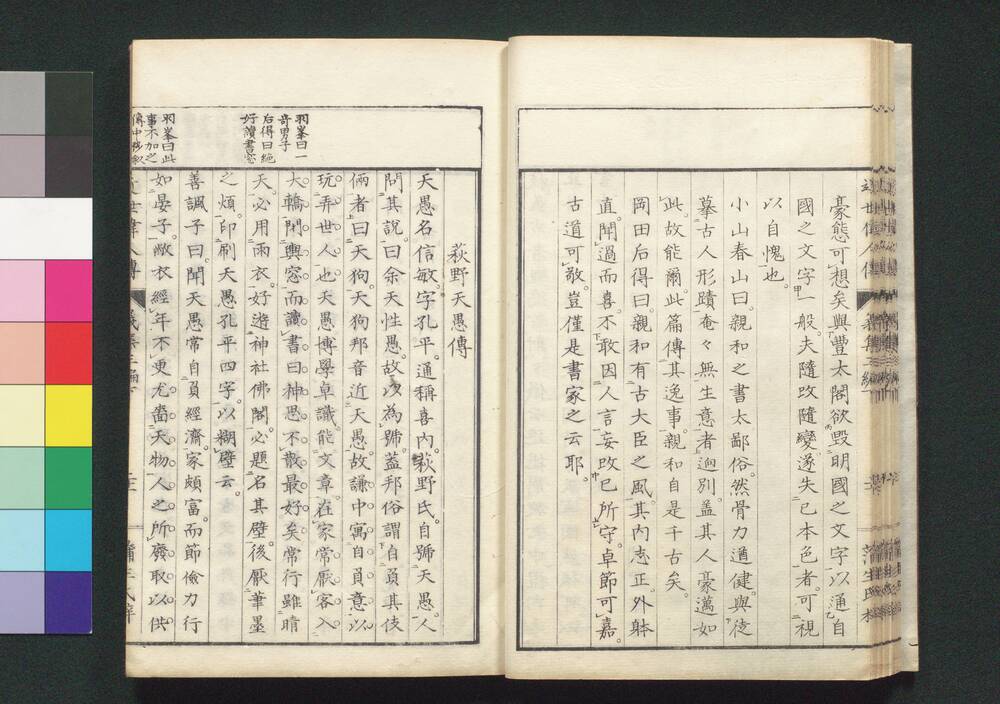 豪態可想矣與豐太閤欲毀明國之文字以通自
國之文字一般夫隨改隨變遂失已本色者可視
以自愧也
小山春山曰親和之書太鄙俗然骨力遒健與徒
摹古人形蹟奄々無生意者迥別蓋其人豪邁如
此故能爾此篇傳其逸事親和自是千古矣
岡田后得曰親和有古大臣之風其内志正外躰
直聞過而喜不敢因人言妄改已所守卓節可嘉
古道可敬豈僅是書家之云耶
萩野天愚傳
天愚名信敏字孔平通稱喜内萩野氏自號天愚人
問其說曰余天性愚故以為號蓋邦俗謂自負其伎
倆者曰天狗天狗邦音近天愚故謙中寓自負意以
玩弄世人也天愚博學卓識能文章在家常厭客入
大轎閉輿窓而讀書曰神思不散最好矣常行雖晴
天必用雨衣好遊神社佛閣必題名其壁後厭筆墨
之煩印刷天愚孔平四字以糊壁云
善諷子曰聞天愚常自負經濟家頗富而節儉力行
如晏子敝衣經年不更尤嗇天物人之所廢取以供
羽峯曰一
奇男子
后得曰絶
好讀書窓
羽峯曰此
事不加之
近世偉人傳
義集三編
蒲生氏梓